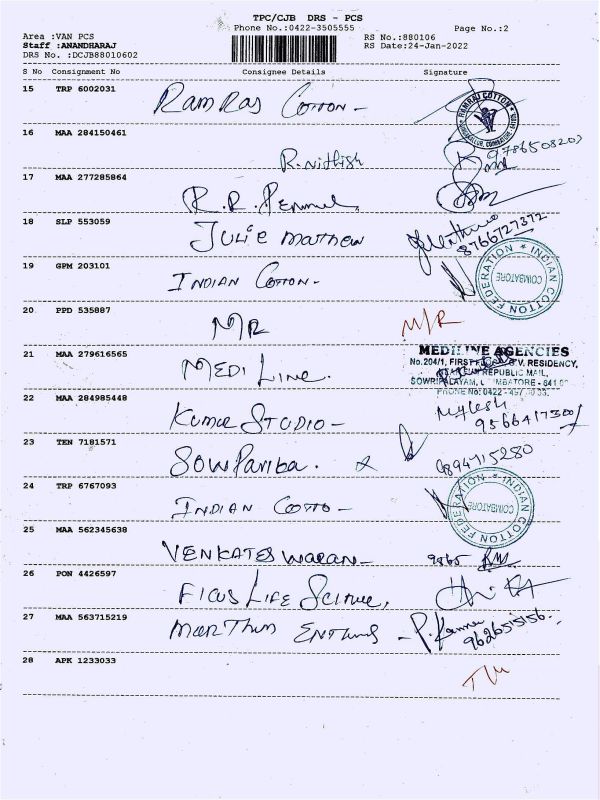 TPC/CJB DRS - PCS
Phone No.:0422-3505555 Page No.:2
Area :VAN PCS RS No.:880106
Staff :ANANDHARAJ RS Date:24-Jan-2022
DRS No. :DCJB88010602
S No Consignment No Consignee Details Signature
15 TRP 6002031 RAMRAJ COTTON - RAMRAJ COTTON
16 MAA 284150461 R. Nithish 9786508203
17 MAA 277285864 R.R.
18 SLP 553059 JULIE MATHEW 8766727372
19 GPM 203101 INDIAN COTTON - INDIAN COTTON FEDERATION COIMBATORE
20 PPD 535887 M/R M/R
21 MAA 279616565 MEDI Line. MEDILINE AGENCIES
No.204/1, FIRST RESIDENCY,
REPUBLIC MAIL,
SOWRIPALAYAM,
PHONE No: 0422 -
22 MAA 284985448 KUMAR STUDIO -
23 TEN 7181571 9894715280
24 TRP 6767093 INDIAN COTTO - INDIAN COTTON FEDERATION COIMBATORE
25 MAA 562345638 VENKATESWARAN - 9865
26 PON 4426597 FICUS LIFE
27 MAA 563715219
28 APK 1233033